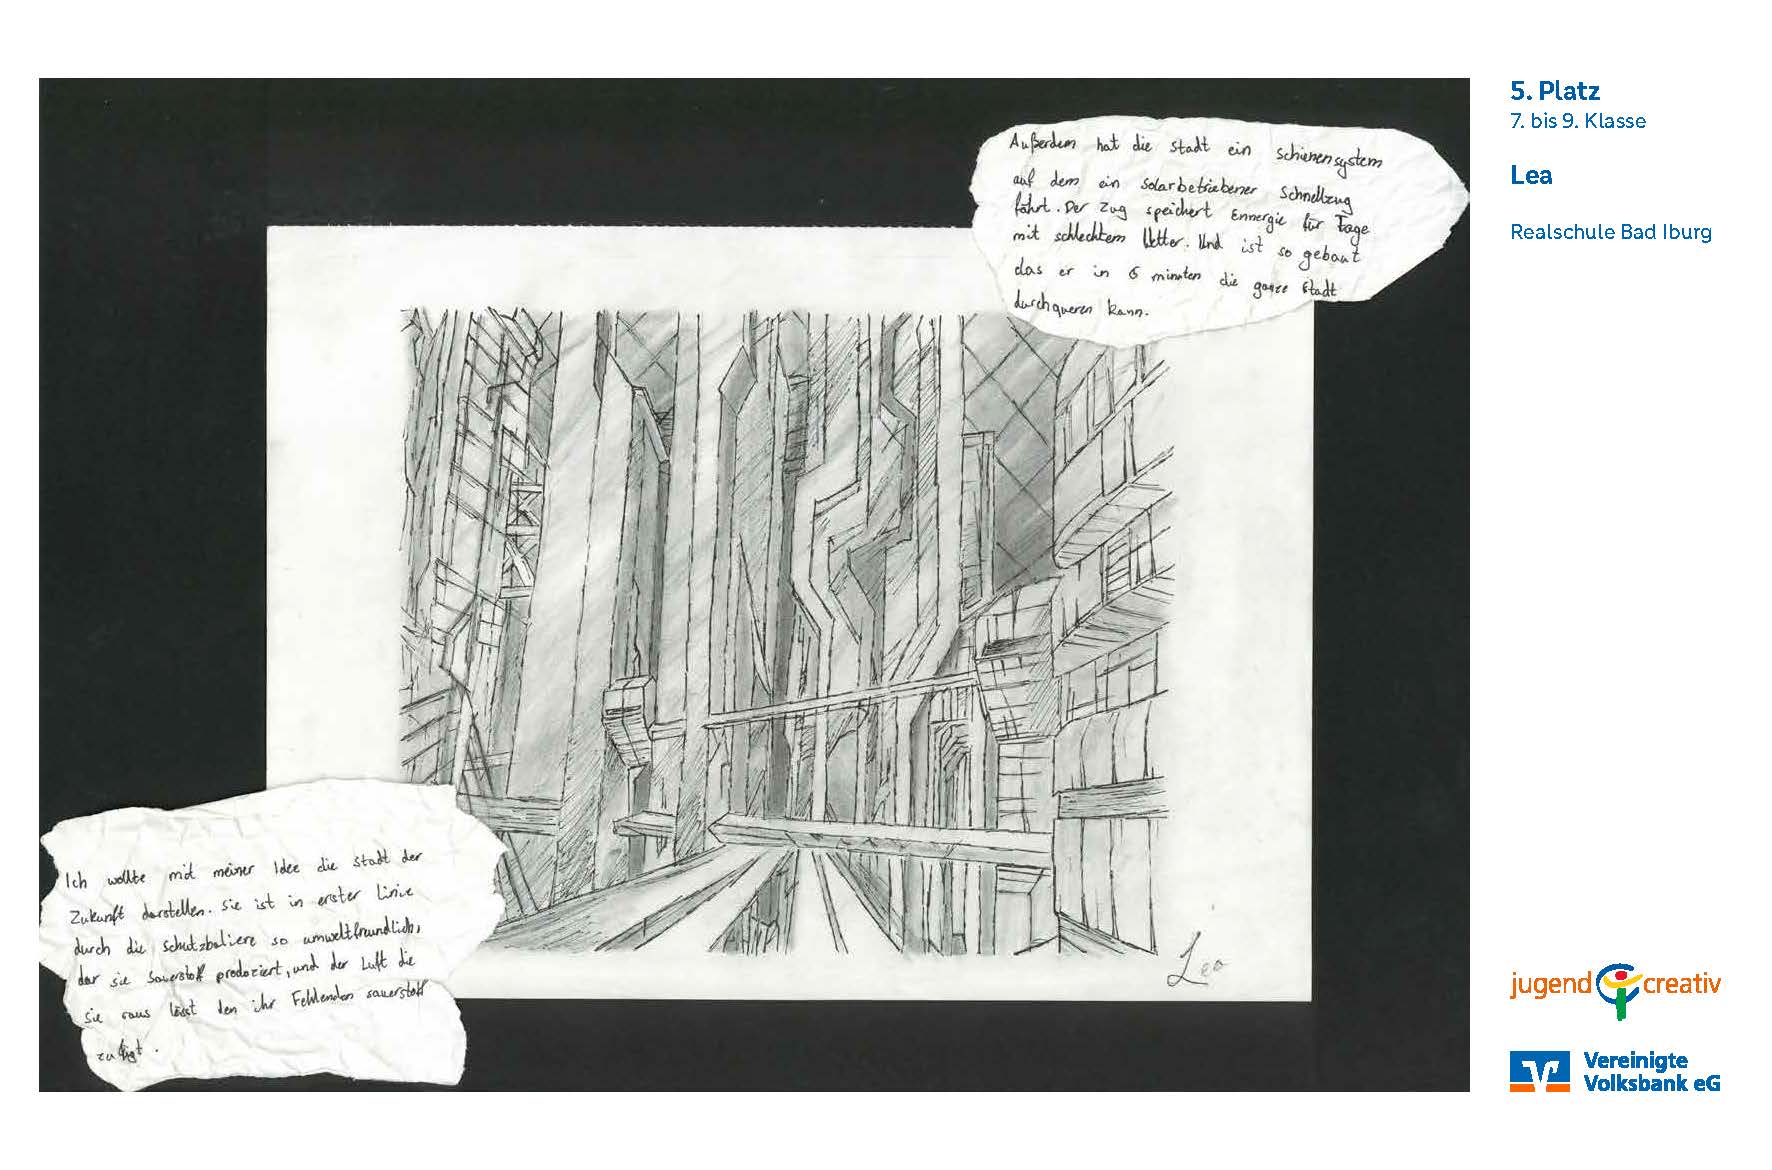 Außerdem hat die Stadt ein Schienensystem
auf dem ein solarbetriebener Schnellzug
fährt. Der Zug speichert Ennergie für Tage
mit schlechtem Wetter. Und ist so gebaut
das er in 6 minuten die ganze Stadt
durchqueren kann.
Ich wollte mit meiner Idee die Stadt der
Zukunft darstellen. Sie ist in erster Linie
durch die schutzbaliere so umweltfreundlich,
dar sie Sauerstoff produziert, und der Luft die
sie raus lässt den ihr Fehlenden sauerstoff
Lea
5. Platz
7. bis 9. Klasse
Lea
Realschule Bad Iburg
jugend creativ
Vereinigte
Volksbank eG